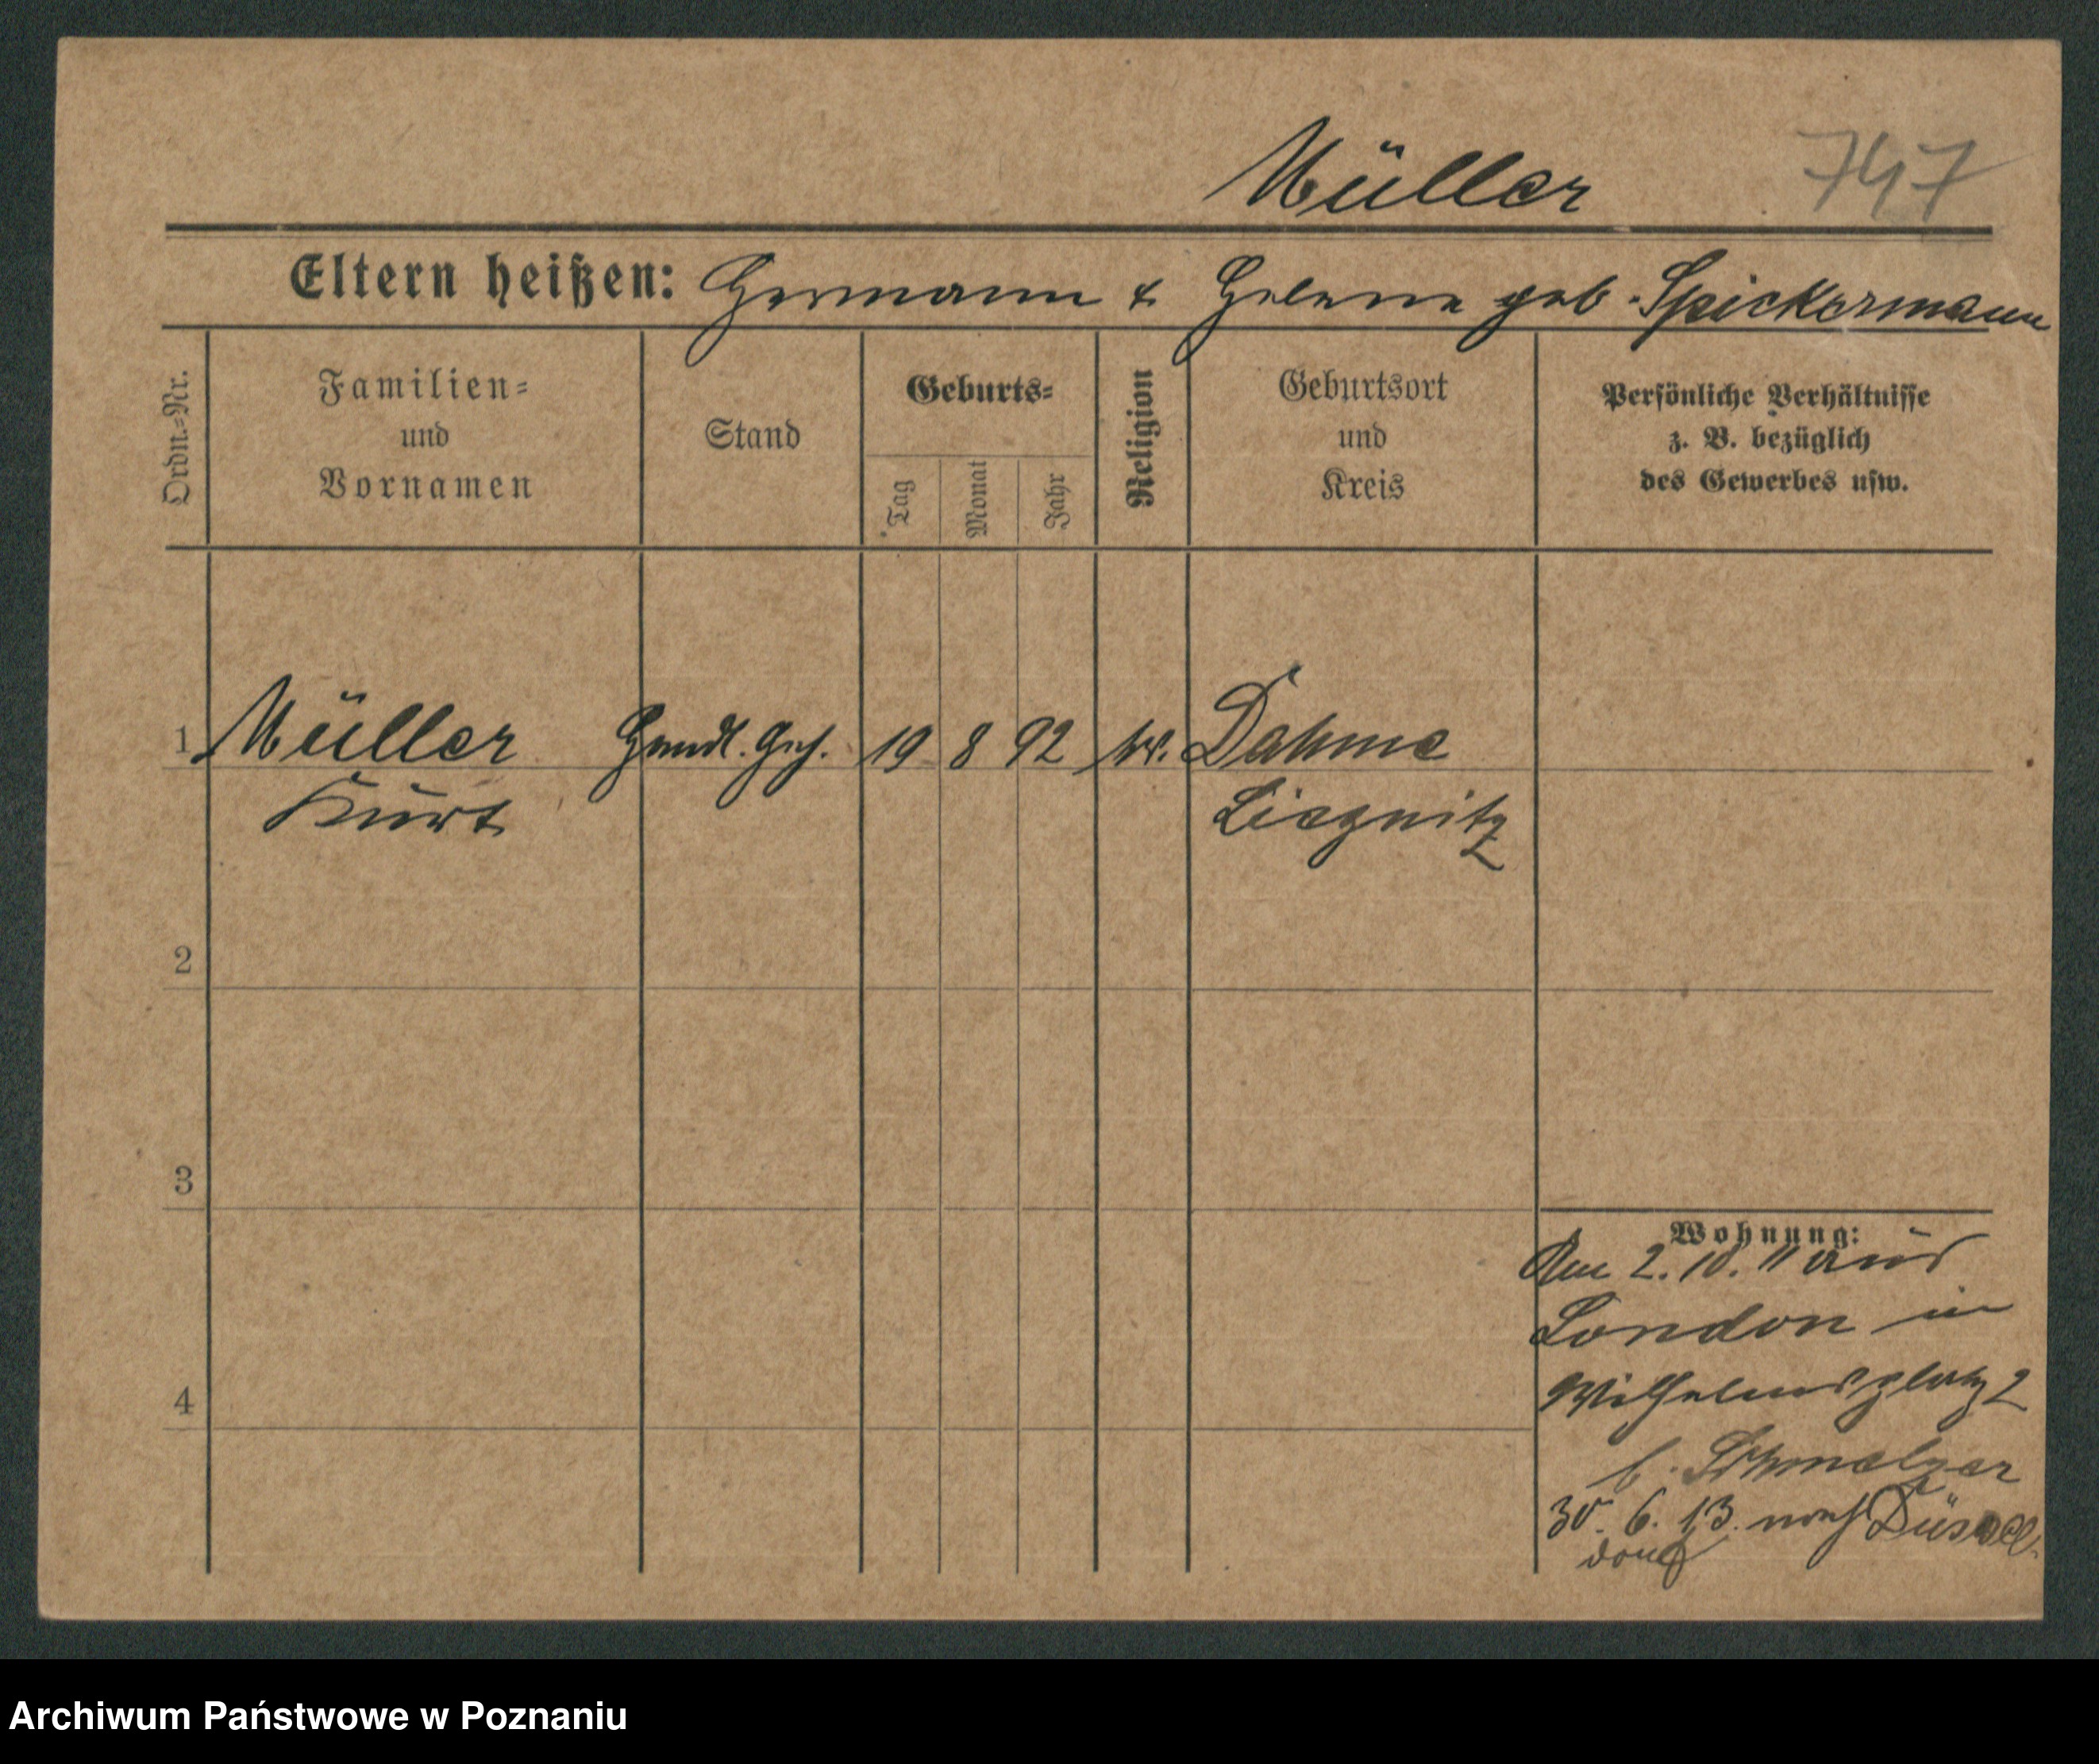 Müller 747
Eltern heißen: Hermann & Helene geb. Spickermann
Ordn.=Nr.
Familien=
und
Vornamen
Stand
Geburts=
Tag
Monat
Jahr
Religion
Geburtsort
und
Kreis
Persönliche Verhältnisse
z. B. bezüglich
des Gewerbes usw.
1 Müller Handl. Geh. 19 8 92 Dahme
Kurt Liegnitz
2
3
4
Wohnung:
Am 2. 10. 11 aus
London in
Wilhelmsplatz 2
b. Schmelzer
30. 6. 13. nach Düssel
dorf
Archiwum Państwowe w Poznaniu